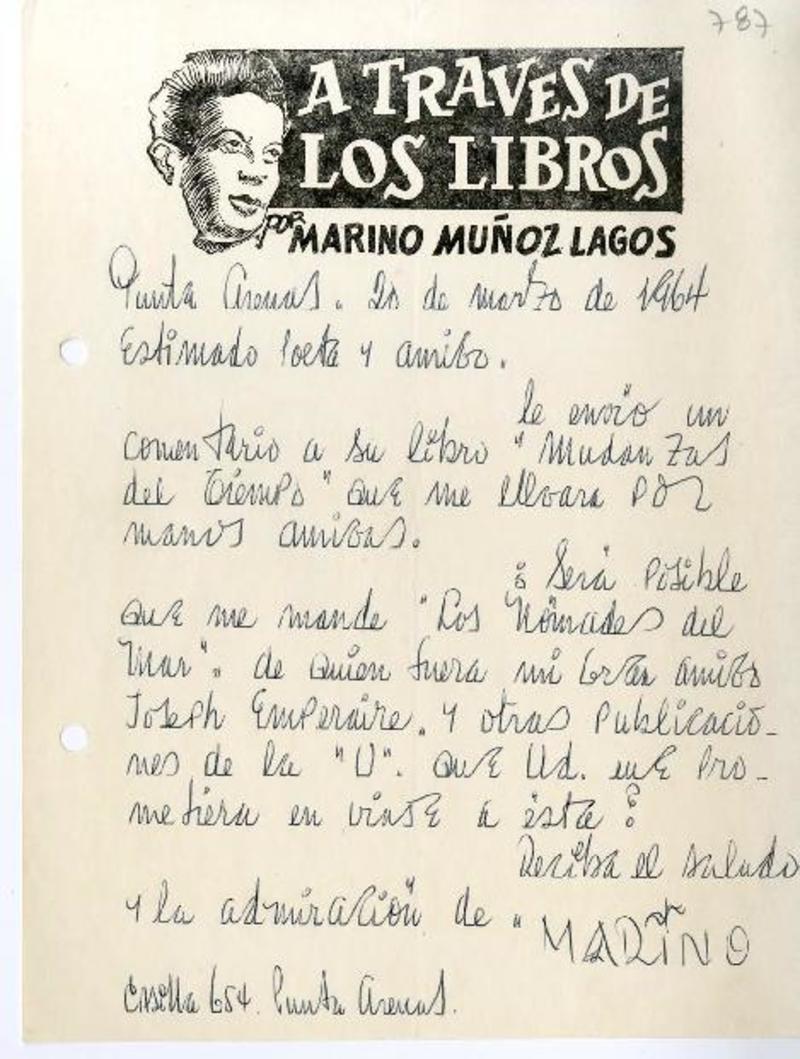 787
A TRAVES DE
LOS LIBROS
POR MARINO MUÑOZ LAGOS
Punta Arenas. 20 de marzo de 1964
Estimado Poeta y amigo.
le envío un
comentario a su libro "Mudanzas
del Tiempo" que me llegara por
manos amigas.
¿Será posible
que me mande "Los Nómades del
Mar". de quien fuera mi gran amigo
Joseph Emperaire. y otras publicacio-
nes de la "U". que Ud. me pro-
metiera en viaje a ésta?
Reciba el saludo
y la admiración de
MARINO
Casilla 654. Punta Arenas.